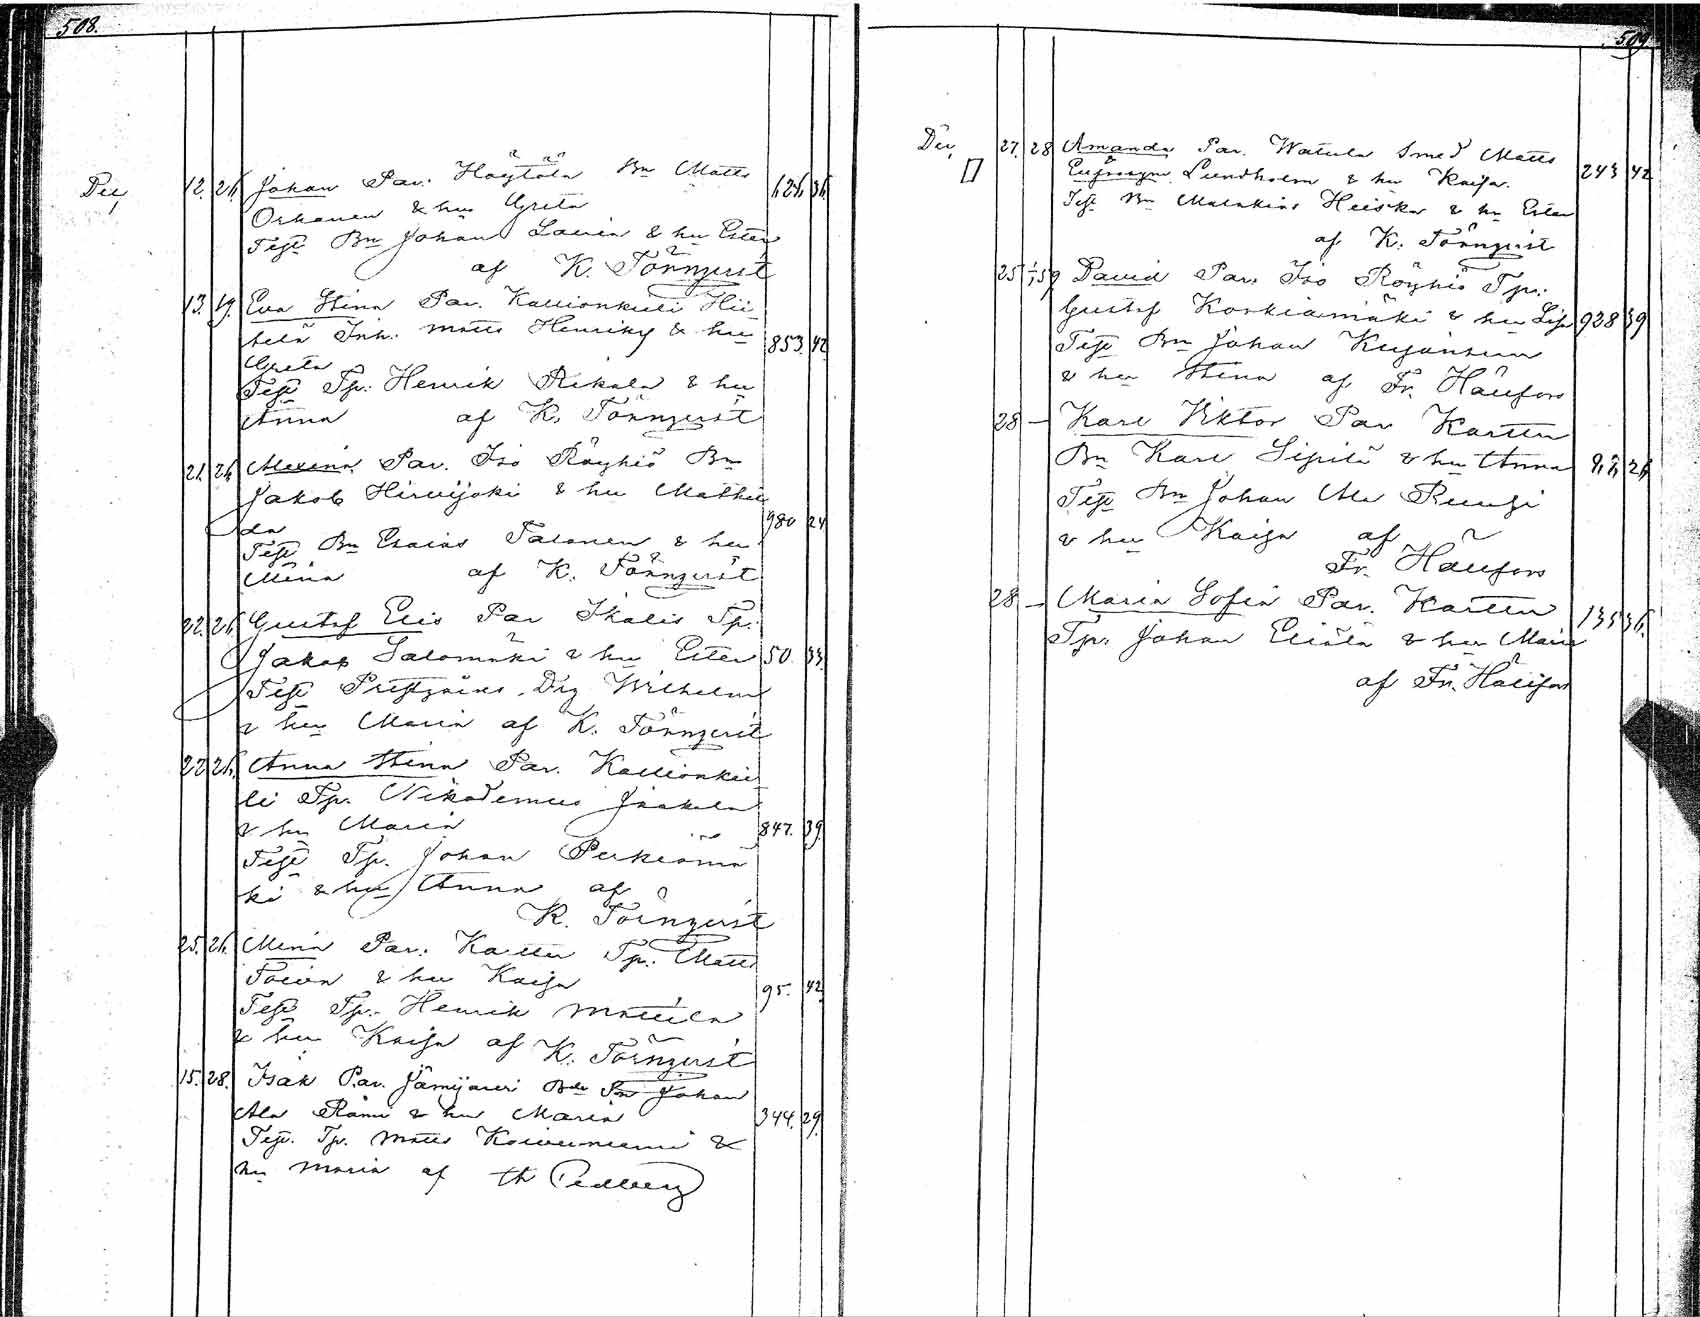 508.
Dec
12. 26. Johan Par. Höytölä Bn Matts 626. 36.
Oskanen & hu Greta
Test Bn Johan Lauria & hu Ester
af K. Törnqvist
13. 19. Eva Stina Par. Kallionkieli Hii-
telä Inh. Matts Henriks & hu 853. 42.
Greta
Test Tp. Henrik Rekola & hu
Anna af K. Törnqvist
21. 26. Par. Iso Röyhiö Bn
Jakob Hirvijoki & hu Mathil
da 980 24
Test Bn Esaias Talonen & hu
Mina af K. Törnqvist
22. 26. Gustaf Elis Par Ikalis Tp.
Jakob Salomäki & hu Ester 50. 33.
Test Prestgårds Drg Wilhelm
& hu Maria af K. Törnqvist
22 26. Anna Stina Par. Kallionkie
li Tp. Nikodemus Jaakola
& hu Maria 847. 39.
Test Tp. Johan Perkiömä
ki & hu Anna af
K. Törnqvist
25. 26. Mina Par. Kartu Tp. Matts
Toivia & hu Kaisa 95. 42.
Test Tp. Henrik Mattila
& hu Kaisa af K. Törnqvist
15. 28. Isak Par. Jämijärvi Johan
Ala Rämi & hu Maria 344. 29.
Test. Tp. Matts Koivuniemi &
hu Maria af
509
Dec,
27. 28 Amanda Par. Watula Smed Matts 243 42
Eufrosyne Lundholm & hu Kaisa.
Test Bn Malakias Heiska & hu Ester
af K. Törnqvist
25 1/1 59 David Par. Iso Röyhiö Tp.
Gustaf Korkiamäki & hu Lisa 928 39
Test Bn Johan Kujansuu
& hu Stina af Fr. Hällfors
28 — Karl Viktor Par Kartu
Bn Karl Sipilä & hu Anna 26
Test Bn Johan Ala Ruusi
& hu Kaisa af
Fr. Hällfors
28 — Maria Sofia Par. Kartu 135 36.
Tp. Johan Eliälä & hu Maria
af Fr. Hällfors